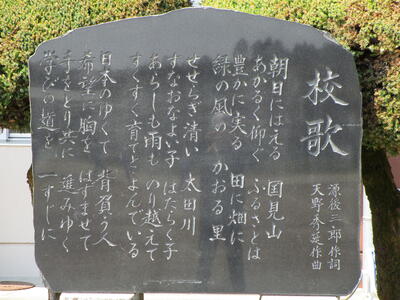 校歌
源後三郎作詞
天野秀延作曲
朝日にはえる 国見山
あかるく仰ぐ ふるさとは
豊かに実る 田に畑に
緑の風の かおる里
せせらぎ清い 太田川
すなおなよい子 はたらく子
あらしも雨も のり越えて
すくすく育てと よんでいる
日本のゆくて 背負う人
希望に胸を はずませて
手をとり共に 進みゆく
学びの道を 一すじに